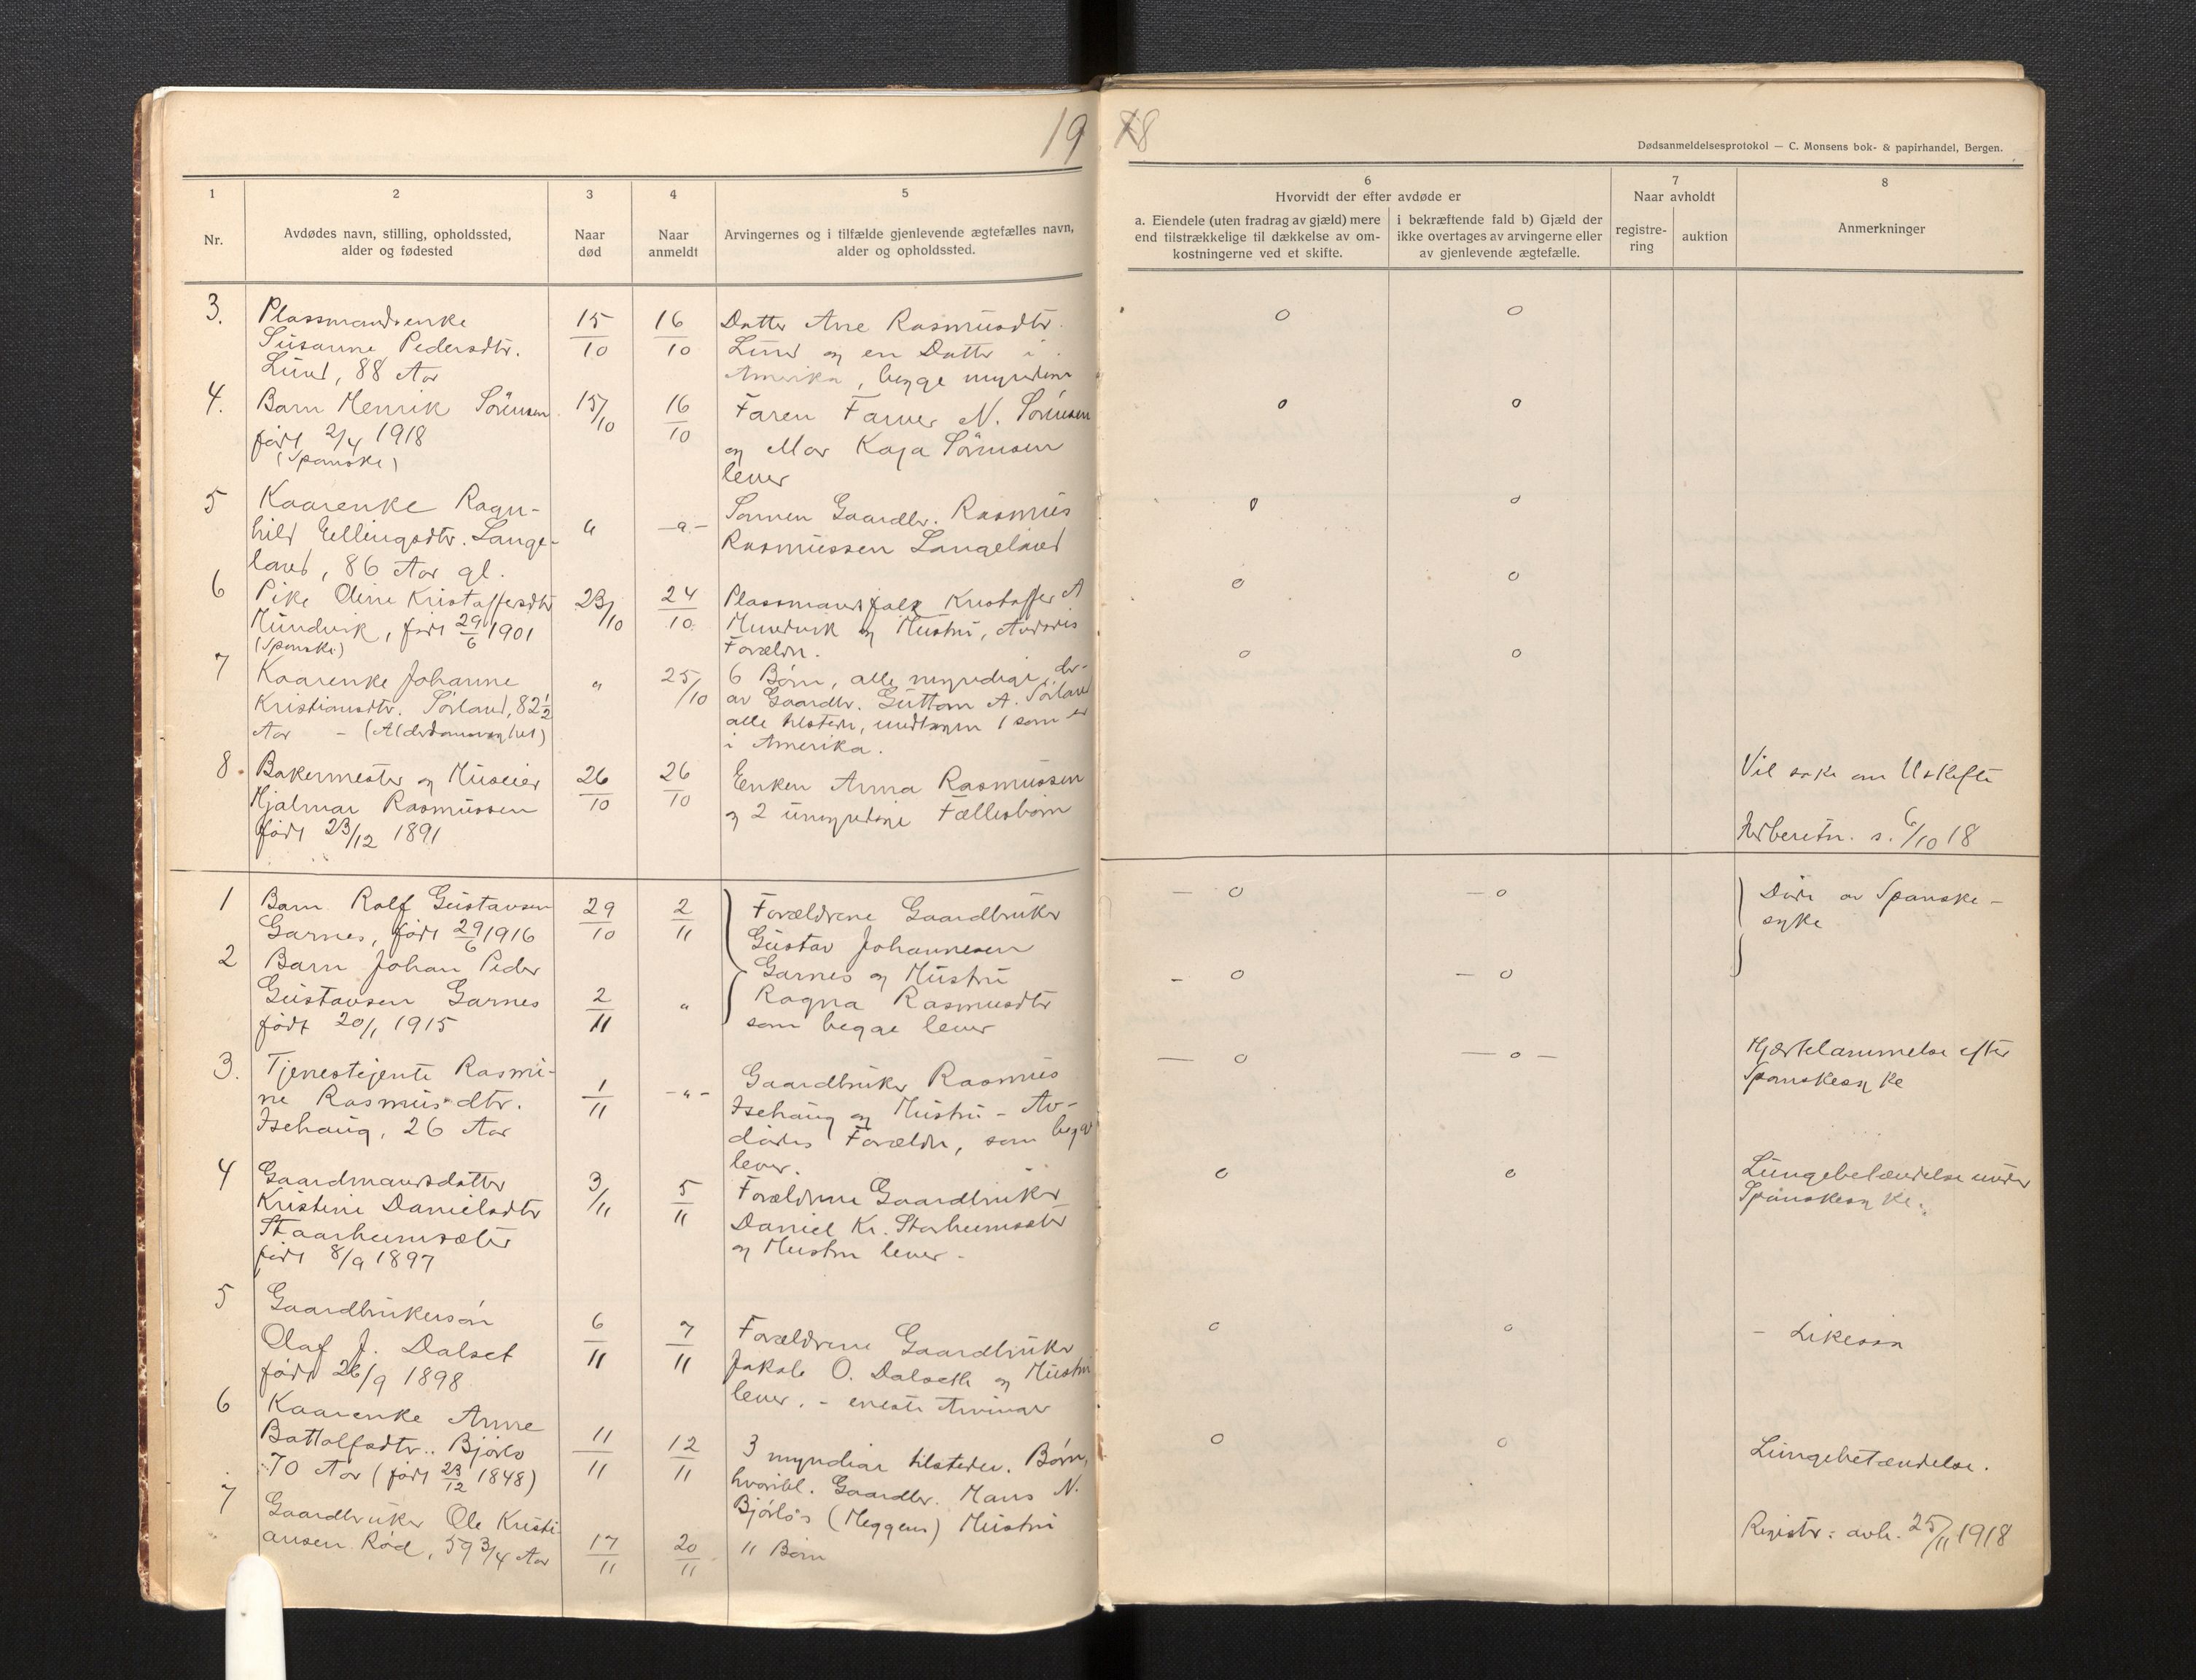 19 18
Dødsanmeldelsesprotokol — C. Monsens bok- & papirhandel, Bergen.
1
Nr.
2
Avdødes navn, stilling, opholdssted,
alder og fødested
3
Naar
død
4
Naar
anmeldt
5
Arvingernes og i tilfælde gjenlevende ægtefælles navn,
alder og opholdssted.
6
Hvorvidt der efter avdøde er
a. Eiendele (uten fradrag av gjæld) mere
end tilstrækkelige til dækkelse av om-
kostningerne ved et skifte.
i bekræftende fald b) Gjæld der
ikke overtages av arvingerne eller
av gjenlevende ægtefælle.
7
Naar avholdt
registre-
ring
auktion
8
Anmerkninger
3.
Plassmandsenke
Susanne Pedersdtr.
Lund, 88 Aar
15/10
16/10
Datter Ane Rasmusdtr.
Lund og en Datter i
Amerika, begge myndige
o
o
4.
Barn Henrik Sörensen
født 2/4 1918
(Spanske)
15/10
16/10
Faren Farver N. Sörensen
og Mor Kaja Sörensen
lever
o
o
5
Kaarenke Ragn-
hild Ellingsdtr. Lange-
land, 86 Aar gl.
"
—"—
Sønnen Gaardbr. Rasmus
Rasmussen Langeland
o
o
6
Pike Oline Kristoffersdtr
Mundvik, født 29/6 1901
(Spanske)
23/10
24/10
Plassmandsfolk Kristoffer A
Mundvik og Hustru, Avdødes
Forældre.
o
o
7
Kaarenke Johanne
Kristiansdtr. Sørland, 82½
Aar - (Alderdomssvaghet)
"
25/10
6 Børn, alle myndige, der-
av Gaardbr. Guttorm A. Sørland
alle tilstede, undtagen 1 som er
i Amerika.
o
o
8.
Bakermester og Huseier
Hjalmar Rasmussen
født 23/12 1891
26/10
26/10
Enken Anna Rasmussen
og 2 umyndige Fællesbørn
Vil søke om Uskifte
Indberetn. s. 6/10 18
1
Barn Rolf Gustavsen
Garnes, født 29/6 1916
29/10
2/11
Forældrene Gaardbruker
Gustav Johannesen
Garnes og Hustru
Ragna Rasmusdtr
som begge lever
— o
— o
Døde av Spanske-
syke
2
Barn Johan Peder
Gustavsen Garnes
født 20/1 1915
2/11
"
— o
— o
3.
Tjenestejente Rasmi-
ne Rasmusdtr.
Isehaug, 26 Aar
1/11
—"—
Gaardbruker Rasmus
Isehaug og Hustru - Av-
dødes Forældre, som begge
lever.
— o
— o —
Hjertelammelse efter
Spanskesyke
4
Gaardmandsdatter
Kristine Danielsdtr
Staarheimsæter
født 8/9 1897
3/11
5/11
Forældrene Gaardbruker
Daniel Kr. Starheimsæter
og Hustru lever -
o
o
Lungebetændelse under
Spanskesyke.
5
Gaardbrukersøn
Olaf J. Dalset
født 26/9 1898
6/11
7/11
Forældrene Gaardbruker
Jakob O. Dalseth og Hustru
lever. - eneste Arvinger
o
o
- Likesaa
6
Kaarenke Anne
Battolfsdtr. Bjørlo
70 Aar (født 23/12 1848)
11/11
12/11
3 myndige tilstedev. Børn,
hvoribl. Gaardbr. Hans N.
Bjørlo's (Heggen) Hustru
o
o
Lungebetændelse.
7
Gaardbruker Ole Kristi-
ansen Rød, 59 3/4 Aar
17/11
20/11
11 Børn
Registr: avh. 25/11 1918